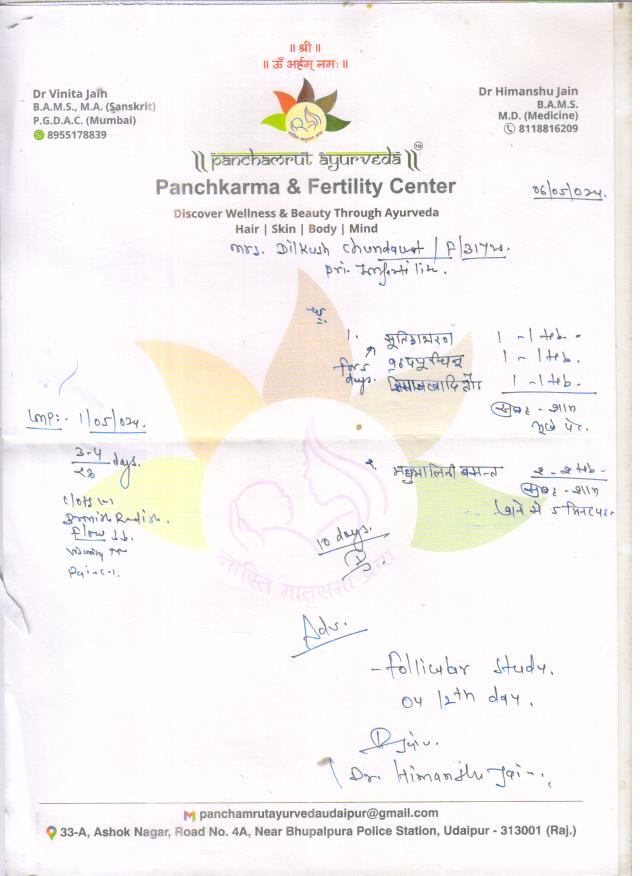 ॥ श्री ॥
॥ ॐ अर्हम् नमः ॥
Dr Vinita Jain
B.A.M.S., M.A. (Sanskrit)
P.G.D.A.C. (Mumbai)
8955178839
Dr Himanshu Jain
B.A.M.S.
M.D. (Medicine)
8118816209
|| panchamrut ayurveda || TM
Panchkarma & Fertility Center
Discover Wellness & Beauty Through Ayurveda
Hair | Skin | Body | Mind
06/05/024.
Mrs. Dilkush Chundawat / F/31Yrs.
Pri. Infertility.
1. 1 - 1 tab.
1 - 1 tab.
for 5 days. 1 - 1 tab.
सुबह - शाम
भूखे पेट.
LMP:- 1/05/024.
3-4 days.
28
२. मधुमालिनी वसन्त २ - २ tab.
सुबह - शाम
खाने से 5 मिनट पहले
clots
Brownish Reddish.
flow
Pain
10 days.
नास्ति मातृसमा
Adv.
- follicular study.
on 12th day.
Djain.
Dr. Himanshu Jain.
panchamrutayurvedaudaipur@gmail.com
33-A, Ashok Nagar, Road No. 4A, Near Bhupalpura Police Station, Udaipur - 313001 (Raj.)